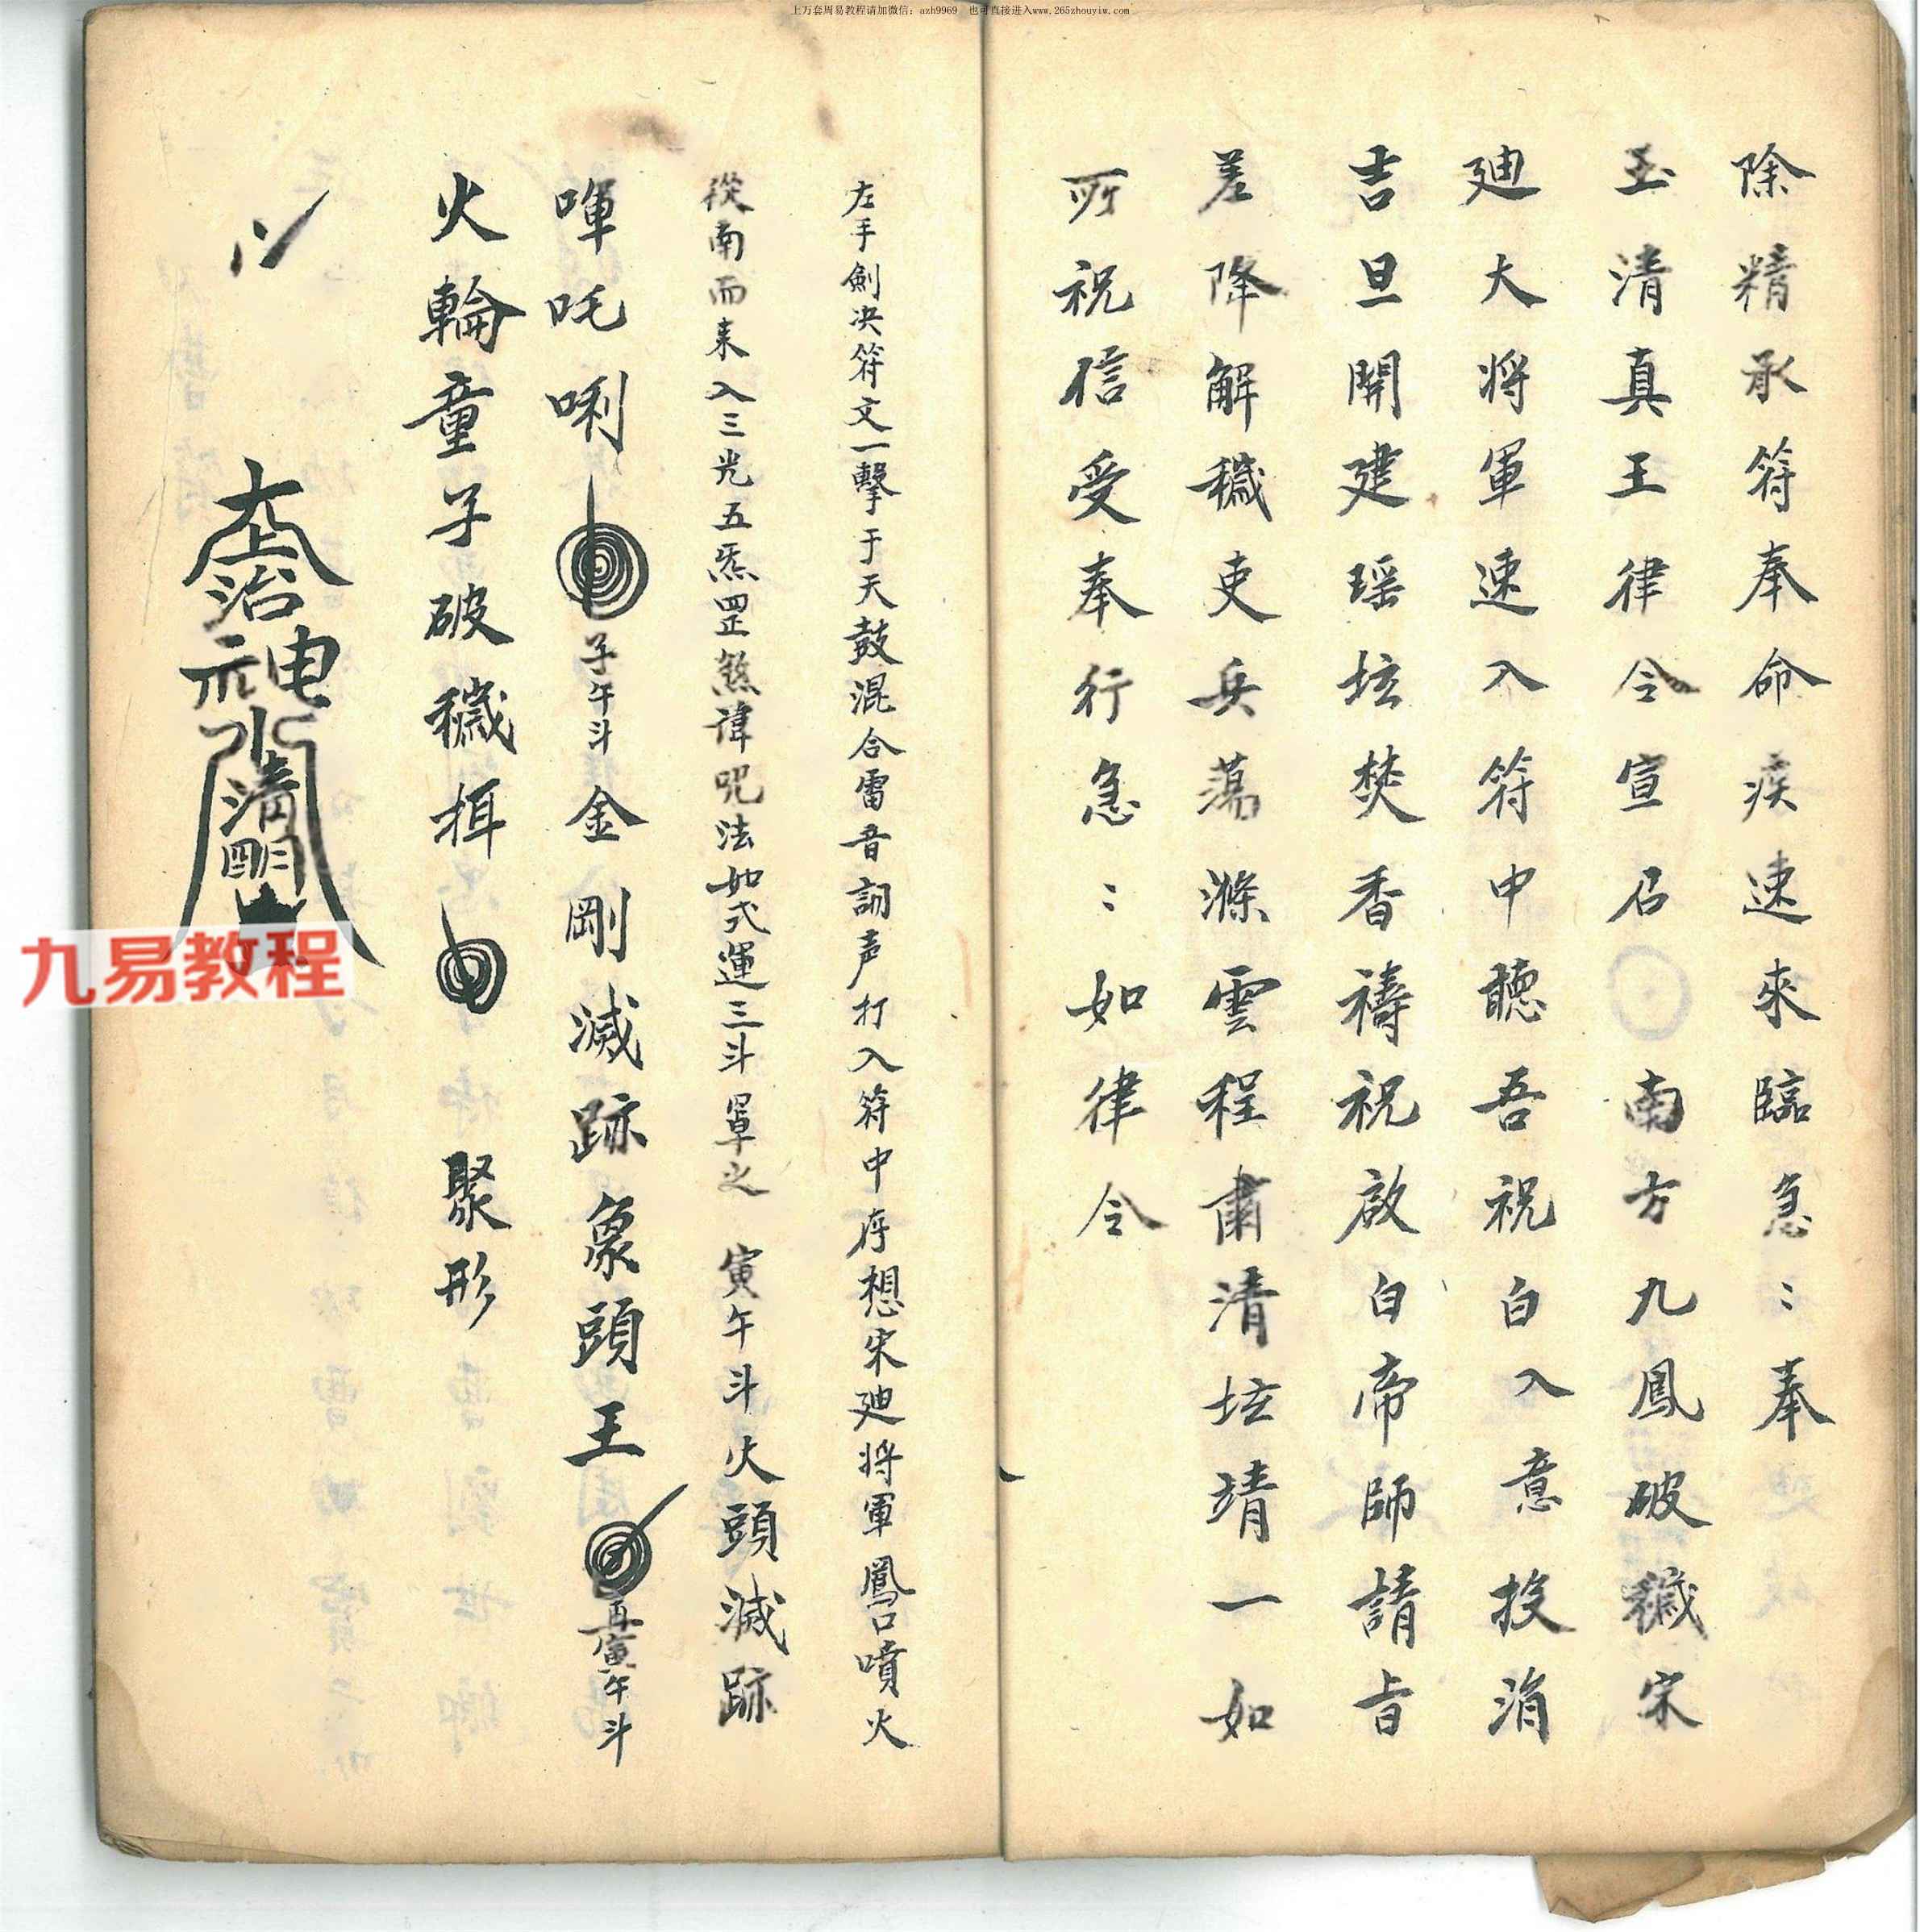 上万套周易教程请加微信：azh9969 也可直接进入www.265zhouyiw.com
除精承符奉命疾速來臨急〻奉
玉清真王律令宣召 南方九鳳破穢宋
廸大将軍速入符中聴吾祝白入意投涓
吉旦開建瑶坛焚香禱祝啟白帝師請旨
差降解穢吏兵蕩滌雲程肅清坛靖一如
所祝信受奉行急〻如律令
左手劍决符文一擊于天鼓混合雷音詷声打入符中存想宋廸将軍鳳口噴火
從南而来入三光五炁罡煞諱咒法如式運三斗罩之 寅午斗火頭滅跡
㖮吒唎 子午斗金剛滅跡象頭王 再寅午斗
火輪童子破穢挕 聚形
太上治
神
水
清
明
九易教程